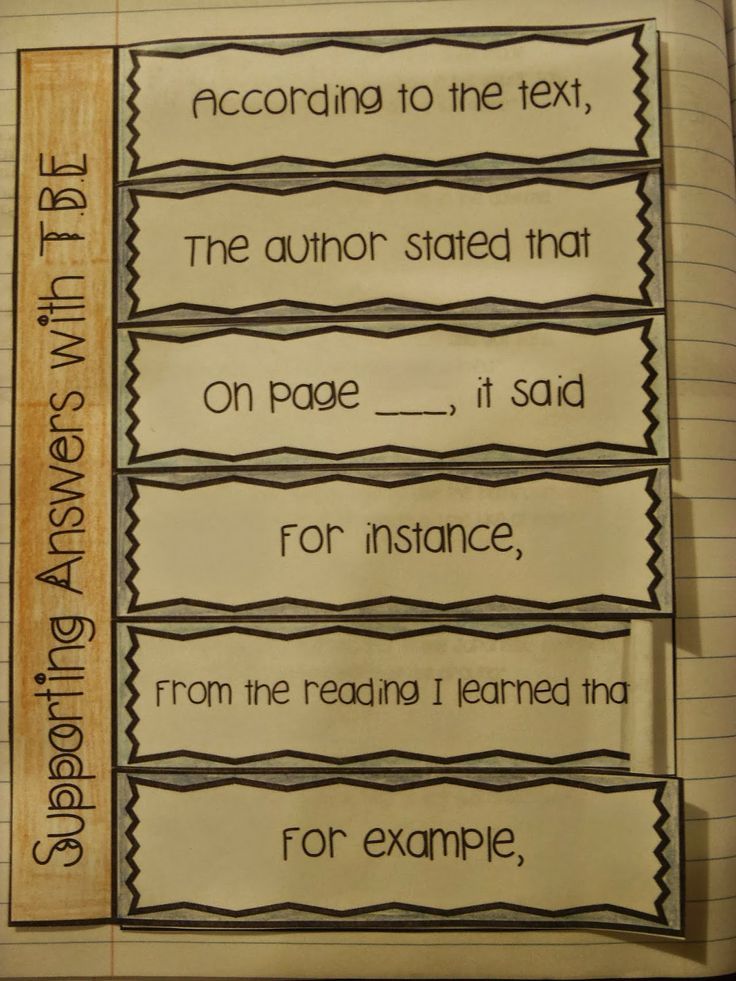 Supporting Answers with T.B.E
According to the text,
The author stated that
On page ___, it said
For instance,
From the reading I learned tha
For example,